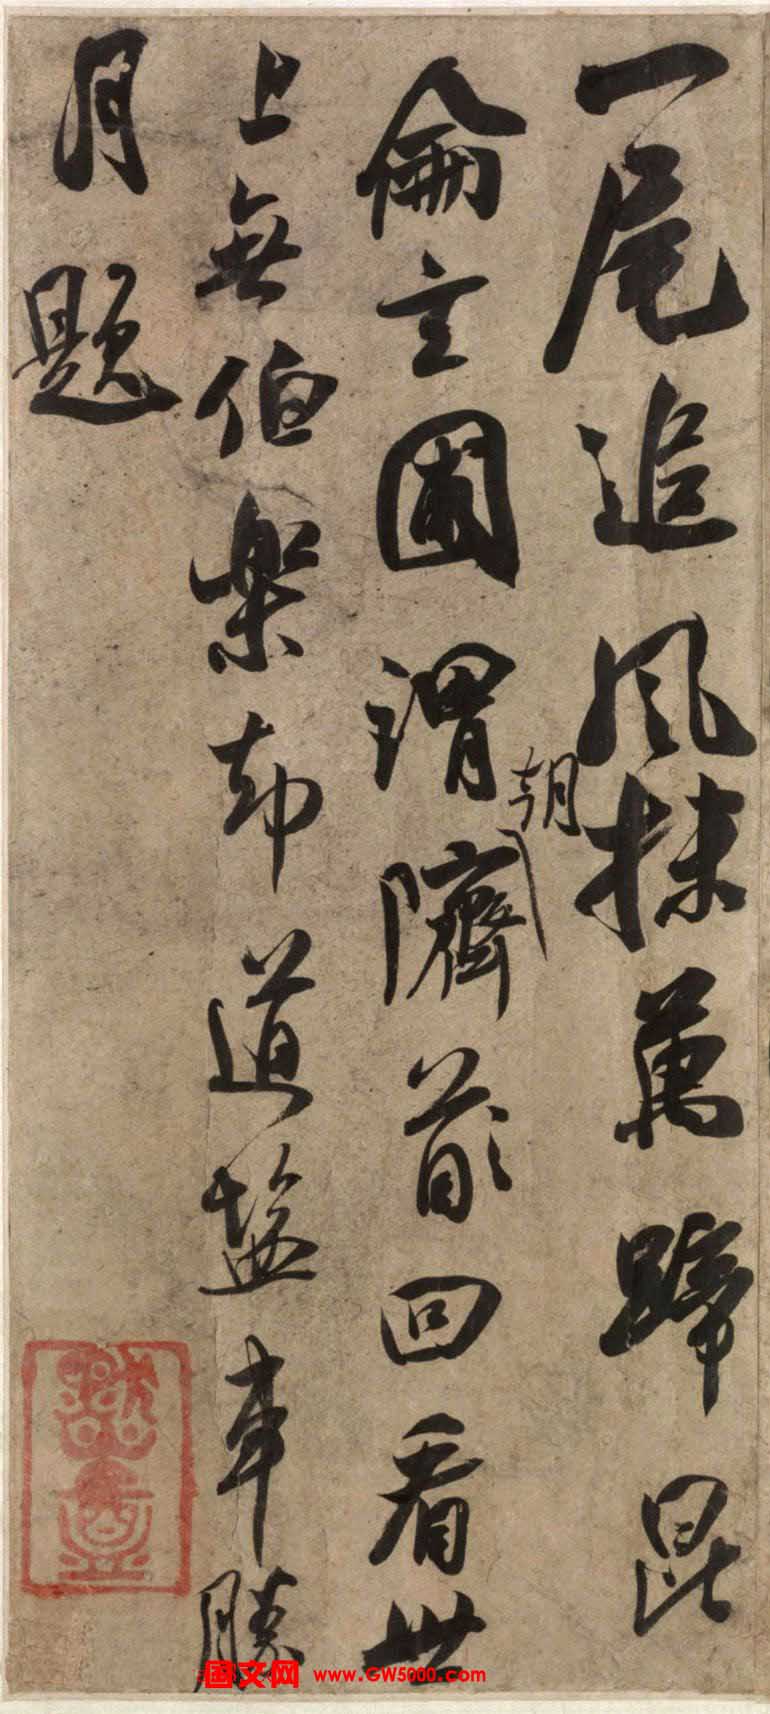 一尾追風抹萬蹄昆
侖玄圃謂朝隮首回看世
上無伯樂却道鹽車勝
月題
国文网 www.GW5000.com